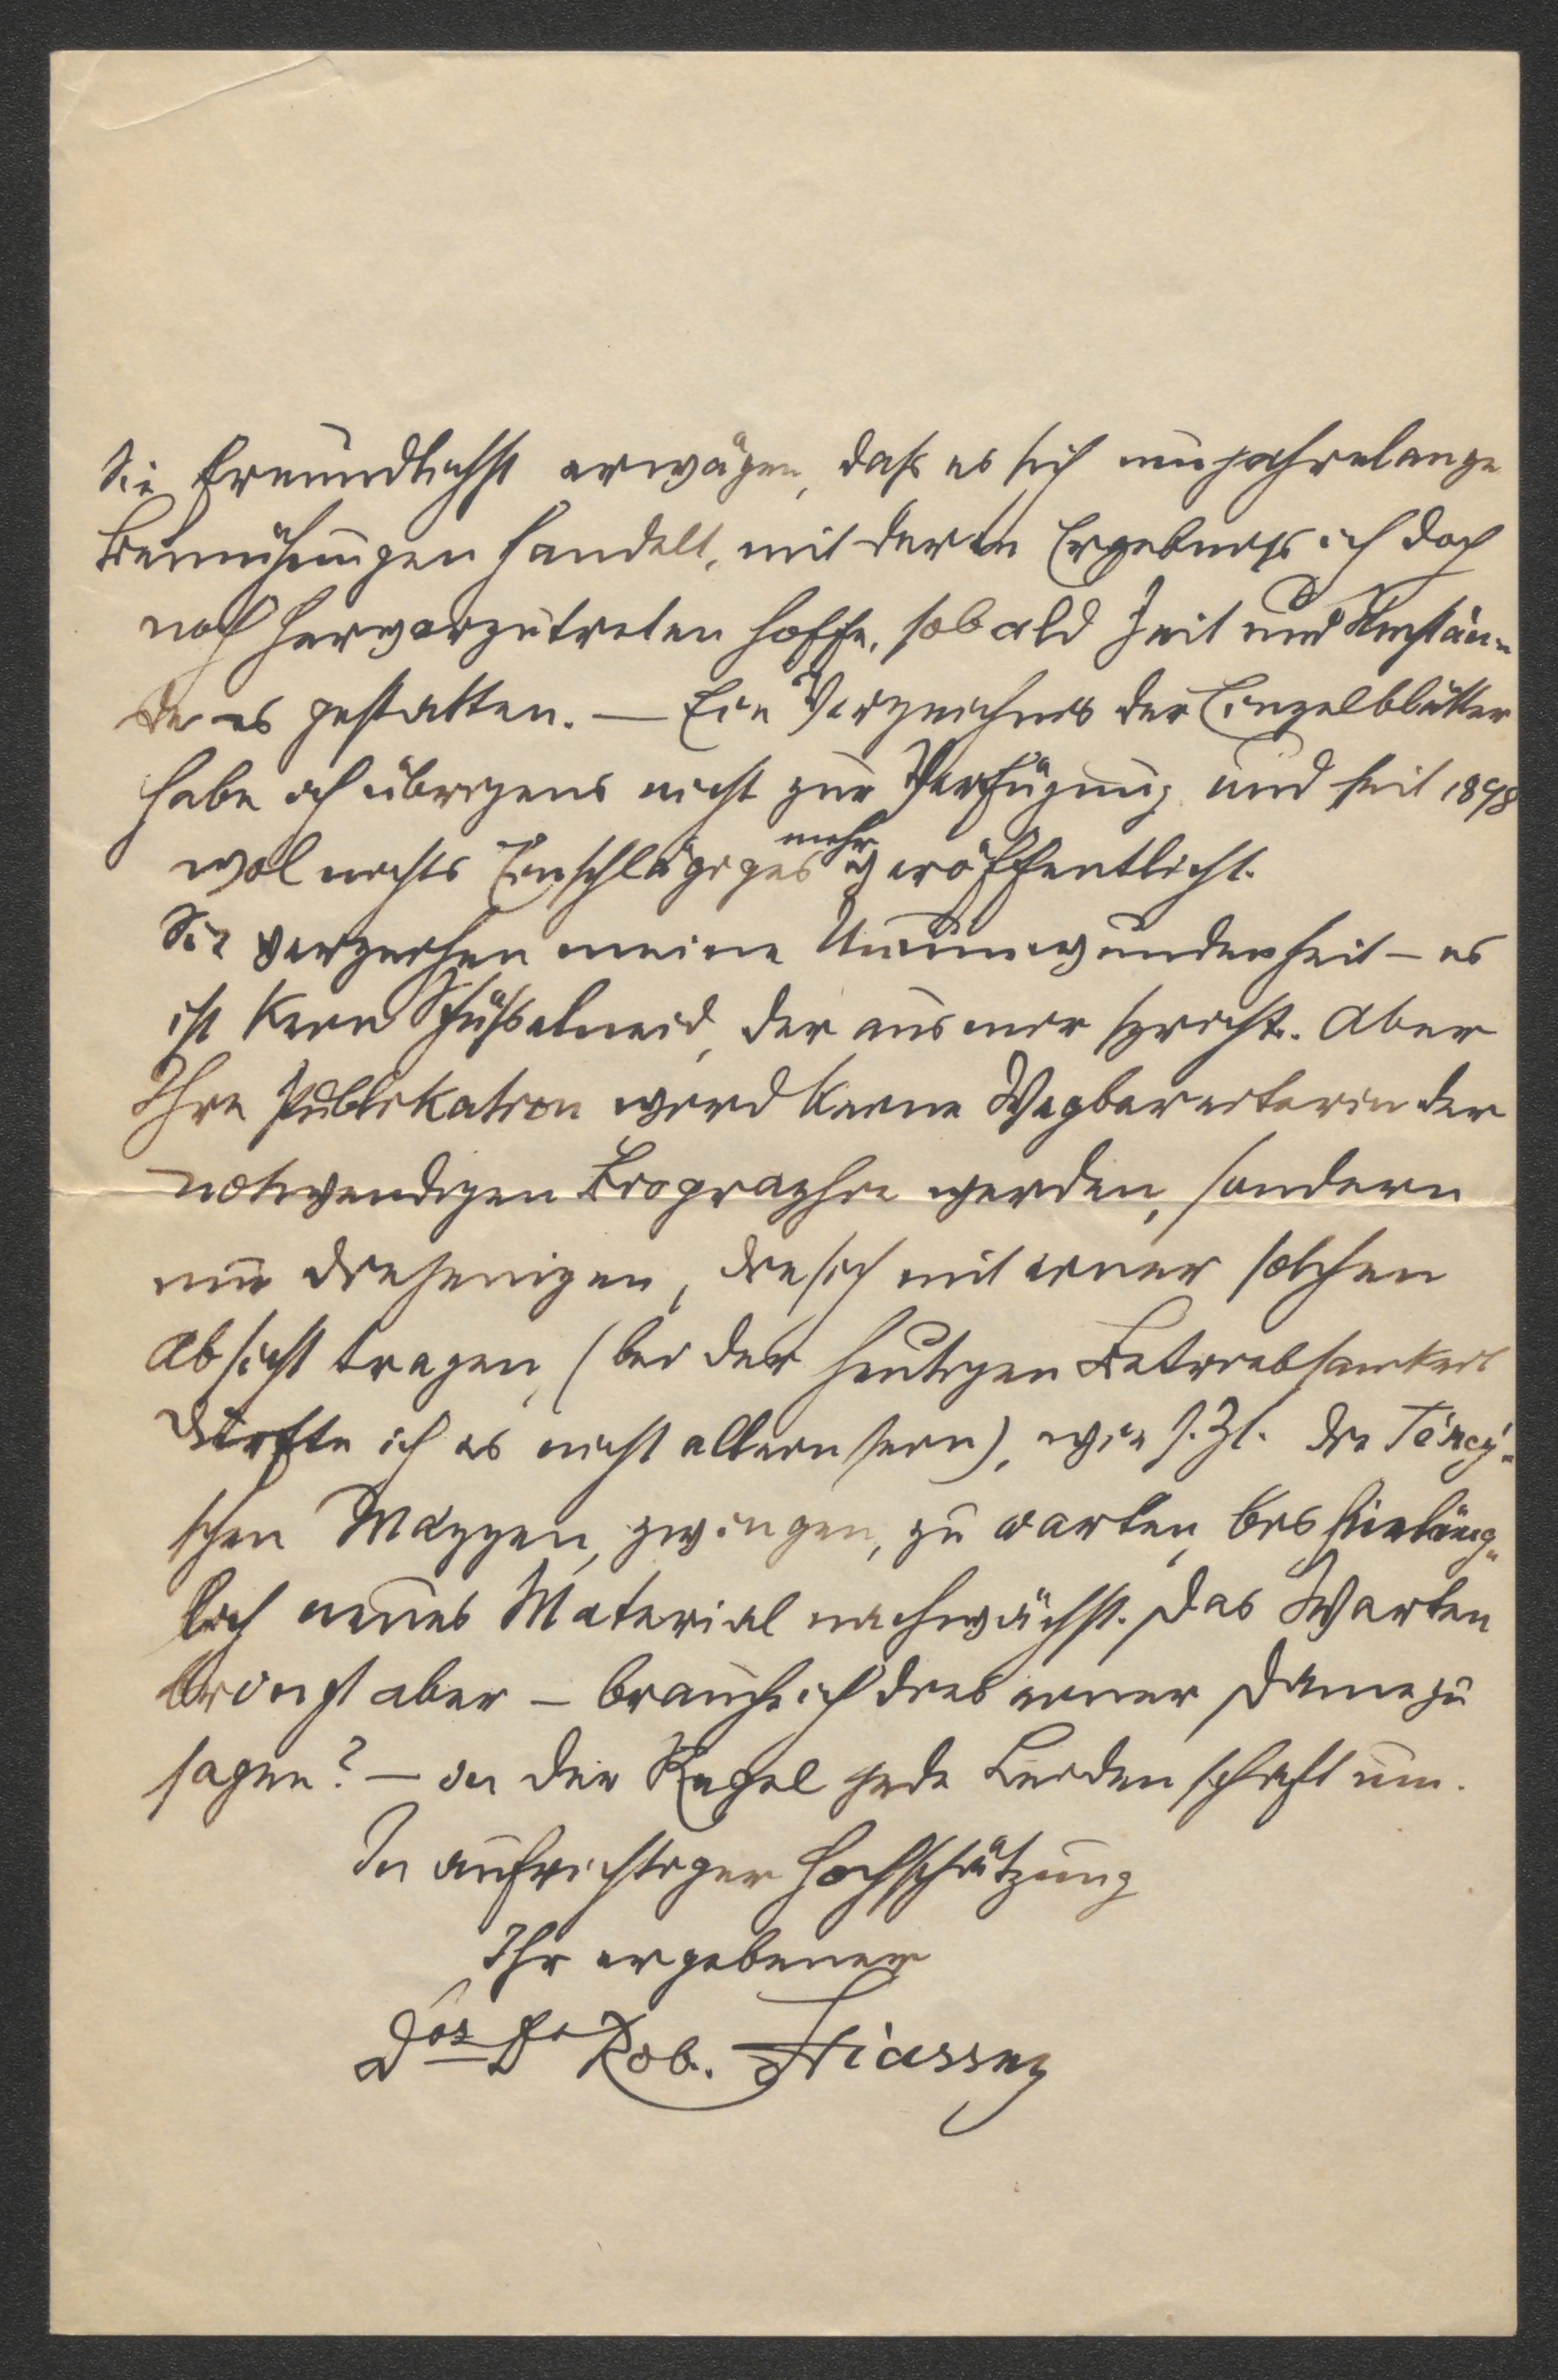 Sie freundlichst erwägen, daß es sich um jahrelange
Bemühungen handelt, mit deren Ergebniss ich doch
noch hervorzutreten hoffe, sobald Zeit und Umstän-
de es gestatten. — Ein Verzeichnis der Einzelblätter
habe ich übrigens nicht zur Verfügung und seit 1898
wol nichts Einschlägiges mehr veröffentlicht.
Sie verzeihen meine Unumwundenheit – es
ist kein Schüsselneid, der aus mir spricht. Aber
Ihre Publikation wird keine Wegbereiterin der
notwendigen Biographie werden, sondern
nur diejenigen, die sich mit einer solchen
Absicht tragen, (bei der heutigen Betriebsamkeit
dürfte ich es nicht allein sein), wie s. Zt. die
schen Mappen, zwingen, zu warten, bis hinläng-
lich neues Material nachwächst. Das Warten
bringt aber – brauche ich dies einer Dame zu
sagen? – in der Regel jede Leidenschaft um.
In aufrichtiger Hochschätzung
Ihr ergebener
Dr Rob.